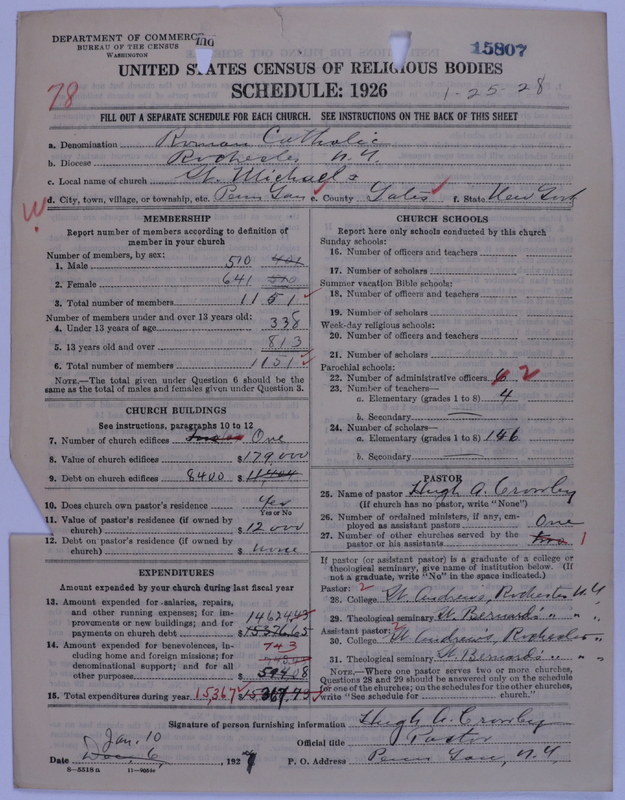 DEPARTMENT OF COMMERCE
BUREAU OF THE CENSUS
WASHINGTON
15807
UNITED STATES CENSUS OF RELIGIOUS BODIES
SCHEDULE: 1926
78
1-25-28
FILL OUT A SEPARATE SCHEDULE FOR EACH CHURCH. SEE INSTRUCTIONS ON THE BACK OF THIS SHEET
a. Denomination Roman Catholic
b. Diocese Rochester N.Y.
c. Local name of church St. Michaels
d. City, town, village, or township, etc. Penn Yan e. County Yates f. State New York
MEMBERSHIP
Report number of members according to definition of member in your church
Number of members, by sex:
1. Male 510 401
2. Female 641 510
3. Total number of members 1151
Number of members under and over 13 years old:
4. Under 13 years of age 338
5. 13 years old and over 813
6. Total number of members 1151
NOTE.—The total given under Question 6 should be the
same as the total of males and females given under Question 3.
CHURCH BUILDINGS
See instructions, paragraphs 10 to 12
7. Number of church edifices One
8. Value of church edifices $179,000
9. Debt on church edifices 8400 $
10. Does church own pastor's residence Yes
Yes or No
11. Value of pastor's residence (if owned by
church) $12000
12. Debt on pastor's residence (if owned by
church) $ none
EXPENDITURES
Amount expended by your church during last fiscal year
13. Amount expended for salaries, repairs,
and other running expenses; for im-
provements or new buildings; and for
payments on church debt 14624.45
$15376.65
14. Amount expended for benevolences, in-
cluding home and foreign missions; for
denominational support; and for all
other purposes 743
$
15. Total expenditures during year 15,367 $15367.45
CHURCH SCHOOLS
Report here only schools conducted by this church
Sunday schools:
16. Number of officers and teachers
17. Number of scholars
Summer vacation Bible schools:
18. Number of officers and teachers
19. Number of scholars
Week-day religious schools:
20. Number of officers and teachers
21. Number of scholars
Parochial schools:
22. Number of administrative officers 6 2
23. Number of teachers—
a. Elementary (grades 1 to 8) 4
b. Secondary
24. Number of scholars—
a. Elementary (grades 1 to 8) 146
b. Secondary
PASTOR
25. Name of pastor Hugh A. Crowley
(If church has no pastor, write "None")
26. Number of ordained ministers, if any, em-
ployed as assistant pastors One
27. Number of other churches served by the
pastor or his assistants two 1
If pastor (or assistant pastor) is a graduate of a college or
theological seminary, give name of institution below. (If
not a graduate, write "No" in the space indicated.)
Pastor: 2
28. College St. Andrews, Rochester N.Y
29. Theological seminary St. Bernards " "
Assistant pastor: 2
30. College St. Andrews, Rochester "
31. Theological seminary St. Bernards " "
NOTE.—Where one pastor serves two or more churches,
Questions 28 and 29 should be answered only on the schedule
for one of the churches; on the schedules for the other churches,
write "See schedule for church."
Signature of person furnishing information Hugh A. Crowley
Official title Pastor
Jan. 10
Date Dec. 6, 1927 P. O. Address Penn Yan, N.Y.
8—5518a 11—9064a